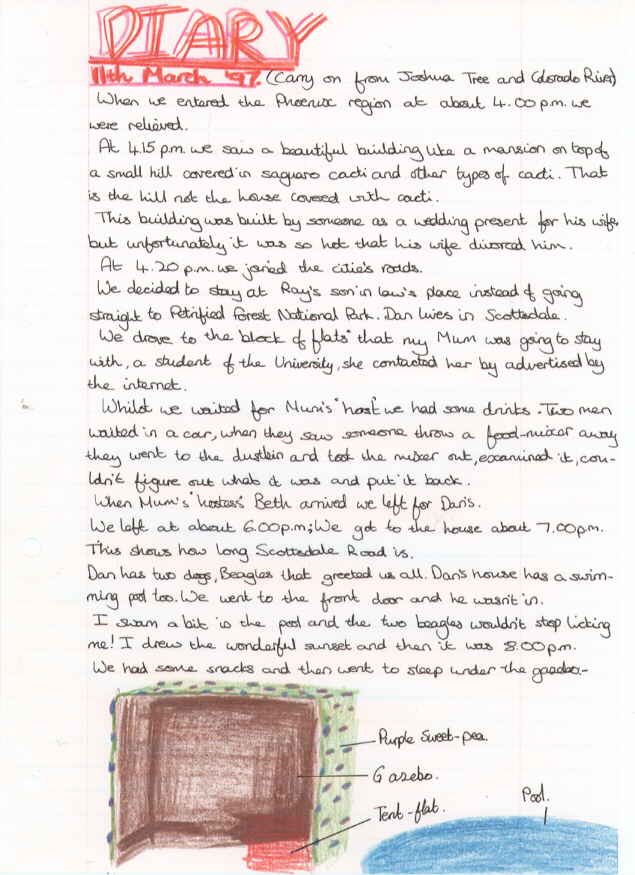 DIARY
11th March '97. (Carry on from Joshua Tree and Colorado River)
When we entered the Phoenix region at about 4.00 p.m. we
were relieved.
At 4.15 p.m. we saw a beautiful building like a mansion on top of
a small hill covered in saguaro cacti and other types of cacti. That
is the hill not the house covered with cacti.
This building was built by someone as a wedding present for his wife,
but unfortunately it was so hot that his wife divorced him.
At 4.20 p.m. we joined the citie's roads.
We decided to stay at Ray's son in law's place instead of going
straight to Petrified Forest National Park. Dan lives in Scottsdale.
We drove to the block of 'flats' that my Mum was going to stay
with, a student of the University, she contacted her by advertised by
the internet.
Whilst we waited for Mum's 'host' we had some drinks. Two men
waited in a car, when they saw someone throw a food-mixer away
they went to the dustbin and took the mixer out, examined it, cou-
ldn't figure out what it was and put it back.
When Mum's 'hostess' Beth arrived we left for Dan's.
We left at about 6.00 p.m; We got to the house about 7.00pm.
This shows how long Scottsdale Road is.
Dan has two dogs, Beagles that greeted us all. Dan's house has a swim-
ming pool too. We went to the front door and he wasn't in.
I swam a bit in the pool and the two beagles wouldn't stop licking
me! I drew the wonderful sunset and then it was 8:00pm.
We had some snacks and then went to sleep under the gazebo.-
Purple Sweet-pea.
Gazebo.
Tent-flat.
Pool.